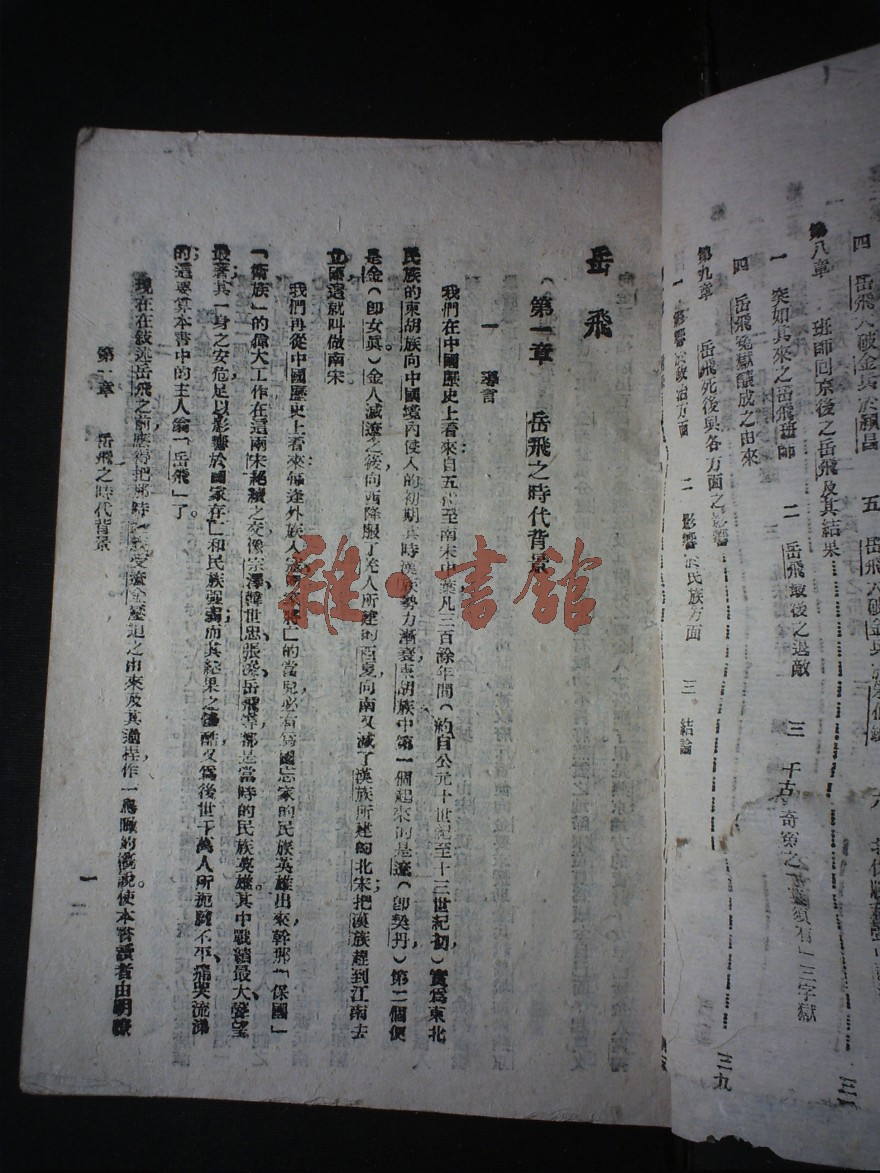 四　岳飛大破金兵於潁昌　五　岳飛大破金兵
第八章　班師回京後之岳飛及其結果……三一
一　突如其來之岳飛班師　二　岳飛最後之退敵　三　千古奇冤之「莫須有」三字獄
四　岳飛冤獄釀成之由來
第九章　岳飛死後與各方面之影響……三九
一　影響於政治方面　二　影響於民族方面　三　結論
岳飛
第一章　岳飛之時代背景
一　導言
我們在中國歷史上看來，自五代至南宋中葉，凡三百餘年間（約自公元十世紀至十三世紀初）實為東北
民族的東胡族向中國境內侵入的初期。其時漢族勢力漸衰，東胡族中第一個起來的是遼（即契丹）第二個便
是金（即女眞）金人滅遼之後，向西降服了羌人所建的西夏，向南又滅了漢族所建的北宋；把漢族趕到江南去
立國，這就叫做南宋
我們再從中國歷史上看來：每逢外族人寇國家將亡的當兒，必有為國忘家的民族英雄出來幹那「保國」
「衛族」的偉大工作。在這兩宋絕續之交，像宗澤、韓世忠、張浚、岳飛等，都是當時的民族英雄。其中戰績最大、聲望
最著，其一身之安危足以影響於國家存亡和民族強弱；而其結果之慘酷，又為後世千萬人所扼腕不平、痛哭流涕
的，這要算本書中的主人翁「岳飛」了。
現在在敍述岳飛之前，應得把那時漢族受遼金壓迫之由來及其過程，作一簡略的演說，使本書讀者由明瞭
第一章　岳飛之時代背景
一
雜·書館